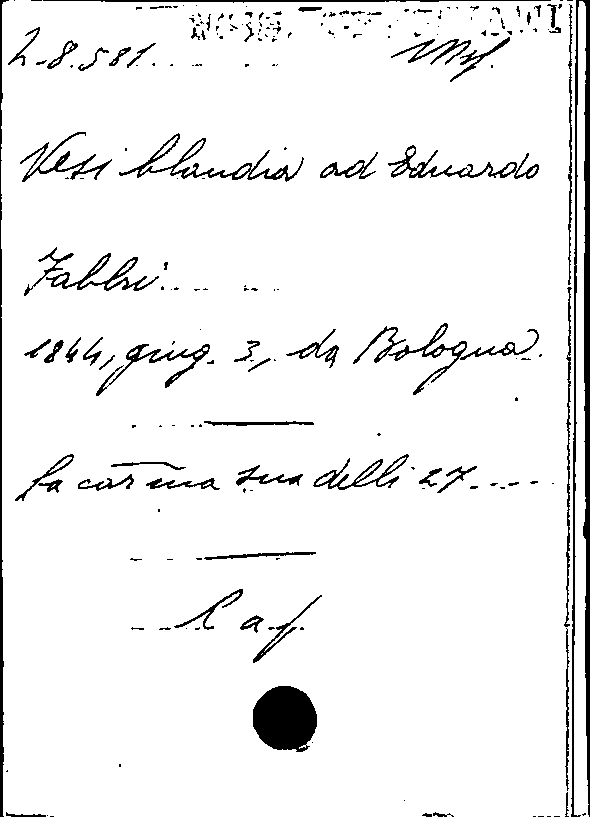 2-8.581
Mss.
Vesi Claudia ad Eduardo
Fabbri
1844, giug. 3, da Bologna.
La car̅ma sua delli 27.....
L a f.